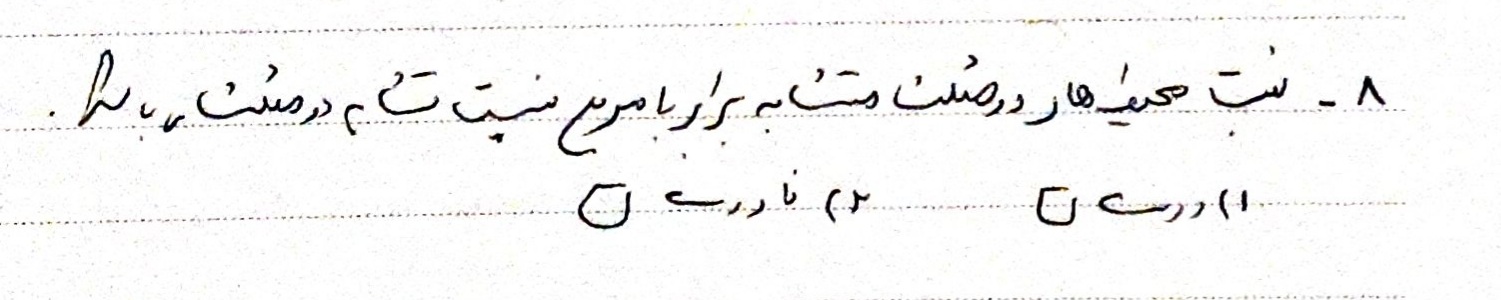 ۸ - نسبت محیط‌های دو مثلث متشابه برابر با مربع نسبت تشابه دو مثلث می‌باشد.
۱) درست □ ۲) نادرست □